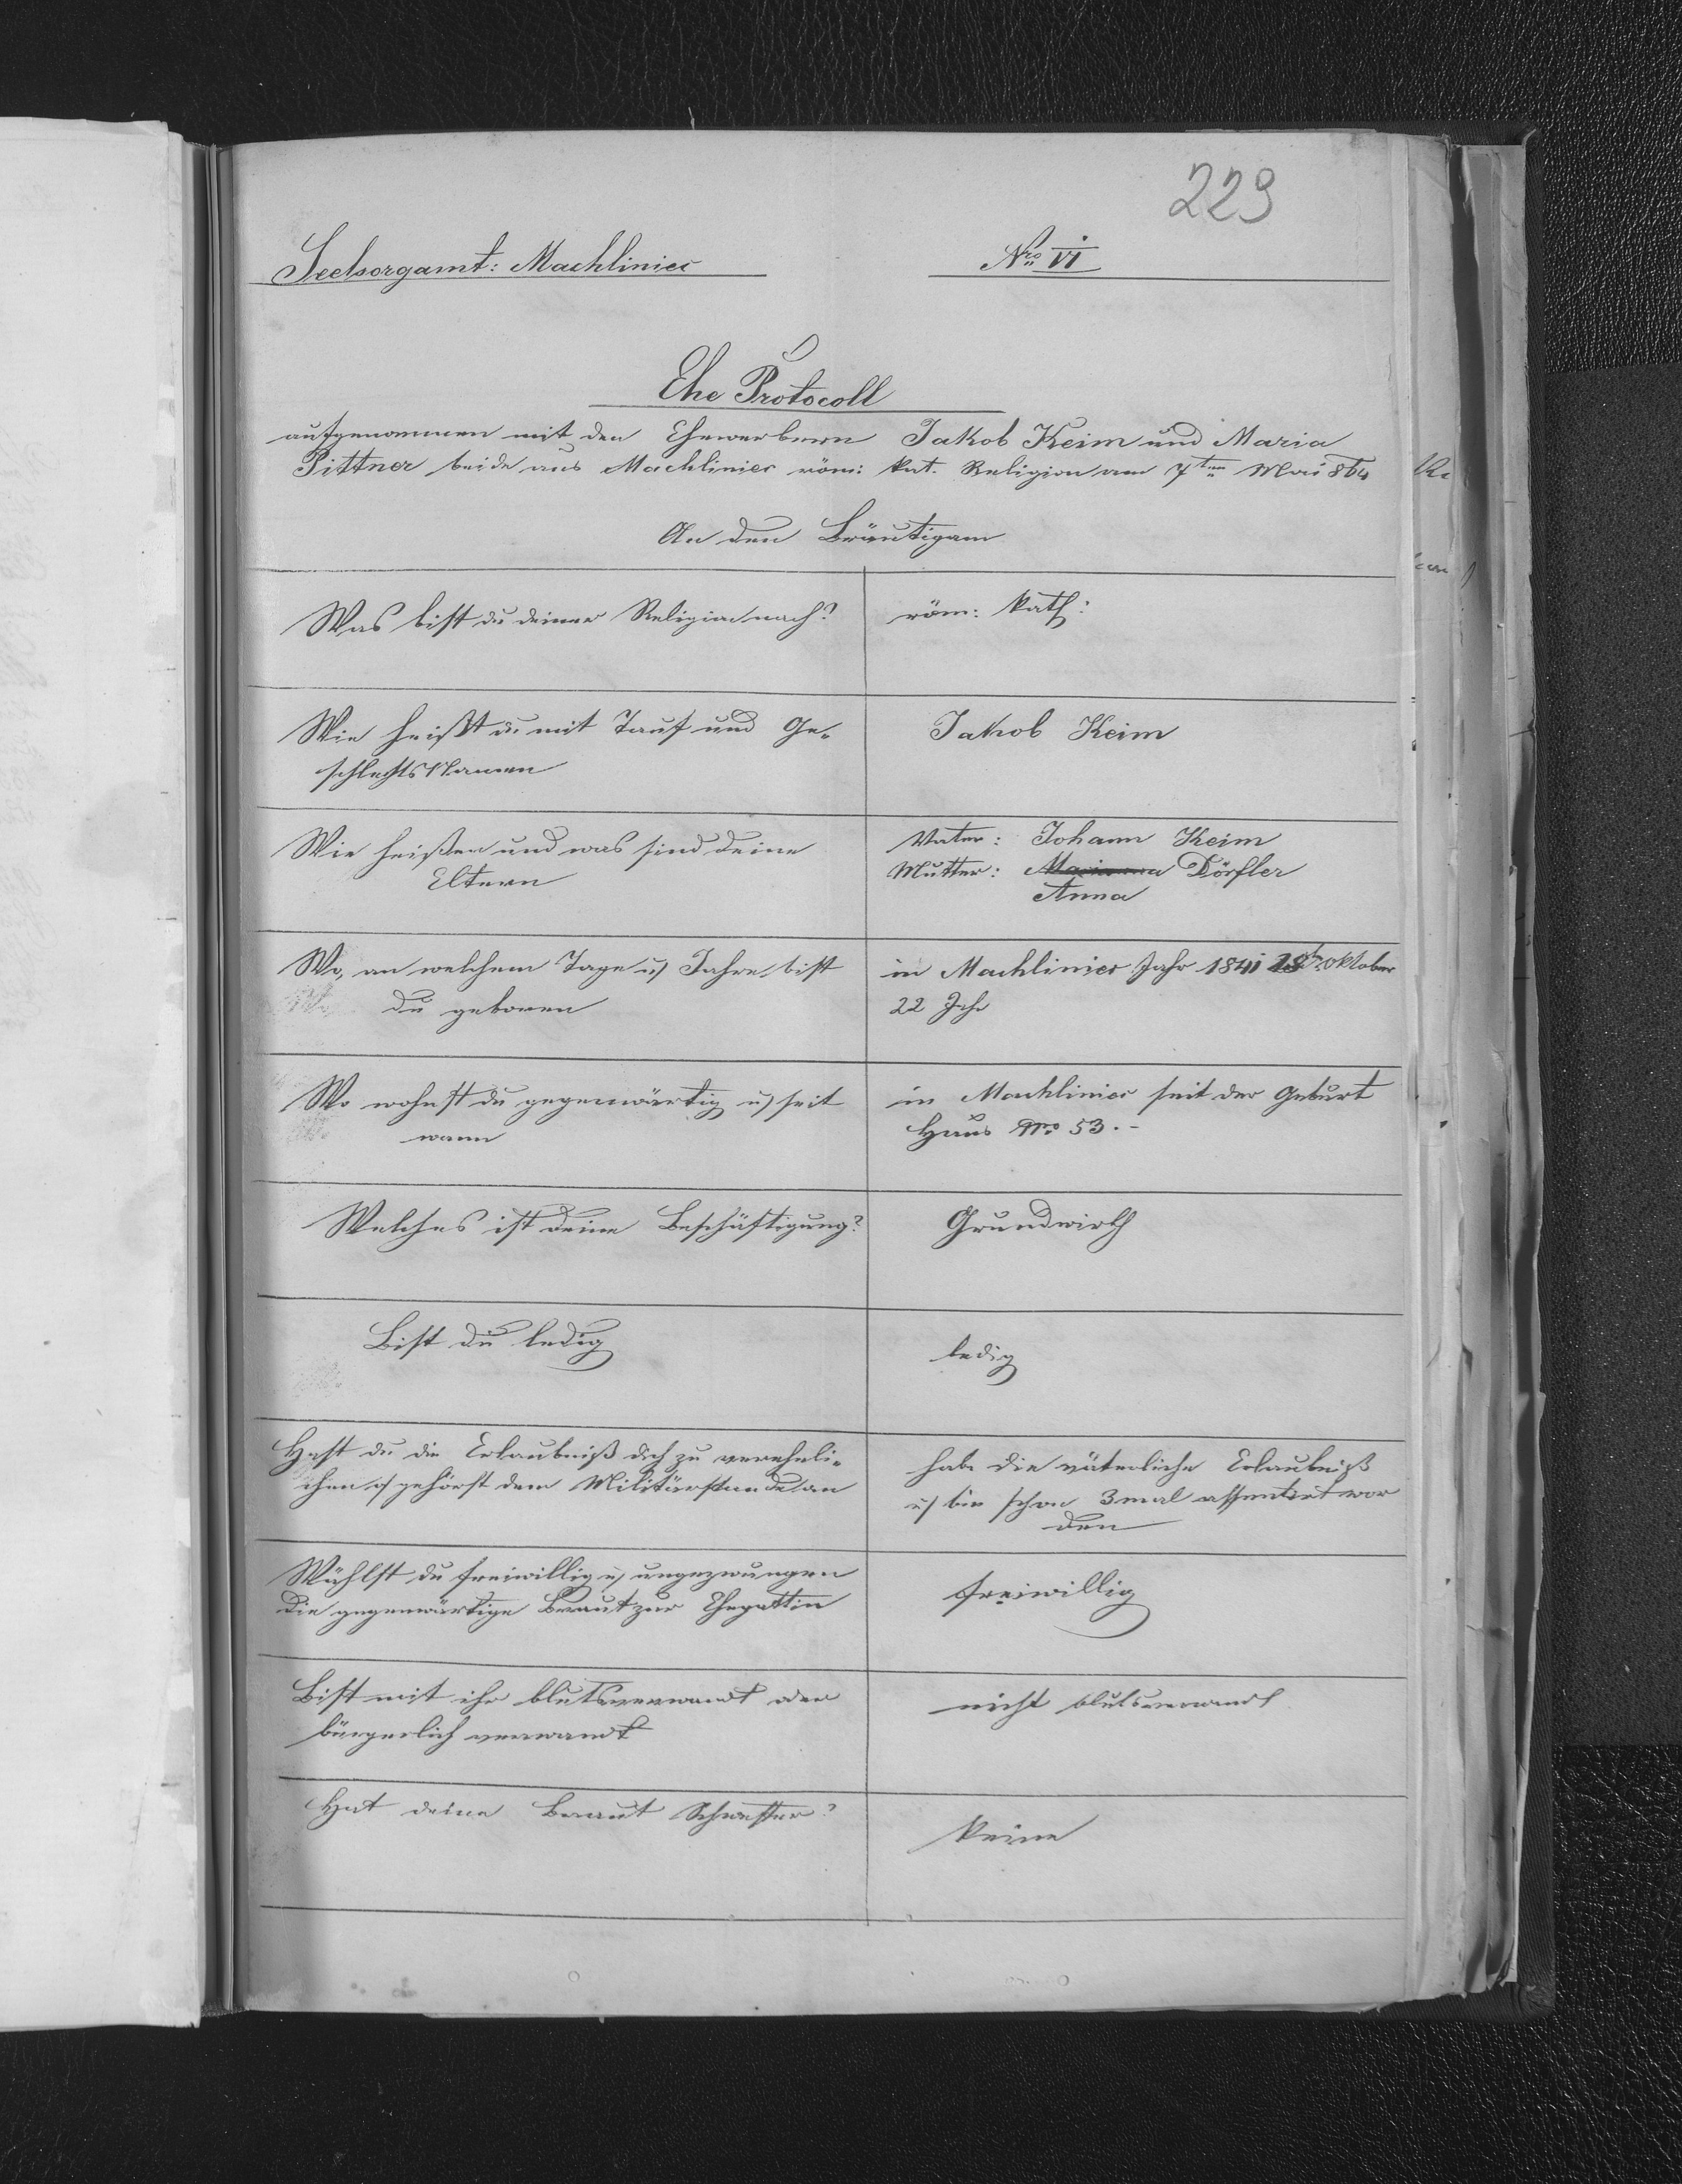 229
Seelsorgamt: Machliniec
Nro VI
Ehe Protocoll
aufgenommen mit den Ehewerbern Jakob Keim und Maria
Pittner beide aus Machliniec röm: kat. Religion am 7ten Mai 864
An den Bräutigam
Was bist du deiner Religion nach?
röm: kath:
Wie heißt du mit Tauf und Ge-
schlechtsNamen
Jakob Keim
Wie heißen und was sind deine
Eltern
Vater: Johann Keim
Mutter: Marianna Dörfler
Anna
Wo, an welchem Tage u Jahre bist
du geboren
in Machliniec Jahr 1841 Oktober
22 Jahr
Wo wohnst du gegenwärtig u seit
wann
in Machliniec seit der Geburt
Haus Nro 53.-
Welches ist deine Beschäftigung?
Grundwirth
Bist du ledig
ledig
Hast du die Erlaubniß dich zu vereheli-
chen o gehörst dem Militärstande an
habe die väterliche Erlaubniß
u bin schon 3mal assentirt wor
den
Wählst du freiwillig u ungezwungen
die gegenwärtige Braut zur Ehegattin
freiwillig
Bist mit ihr blutsverwandt oder
bürgerlich verwandt
nicht blutsverwandt
Hat deine Braut Schwester?
keine